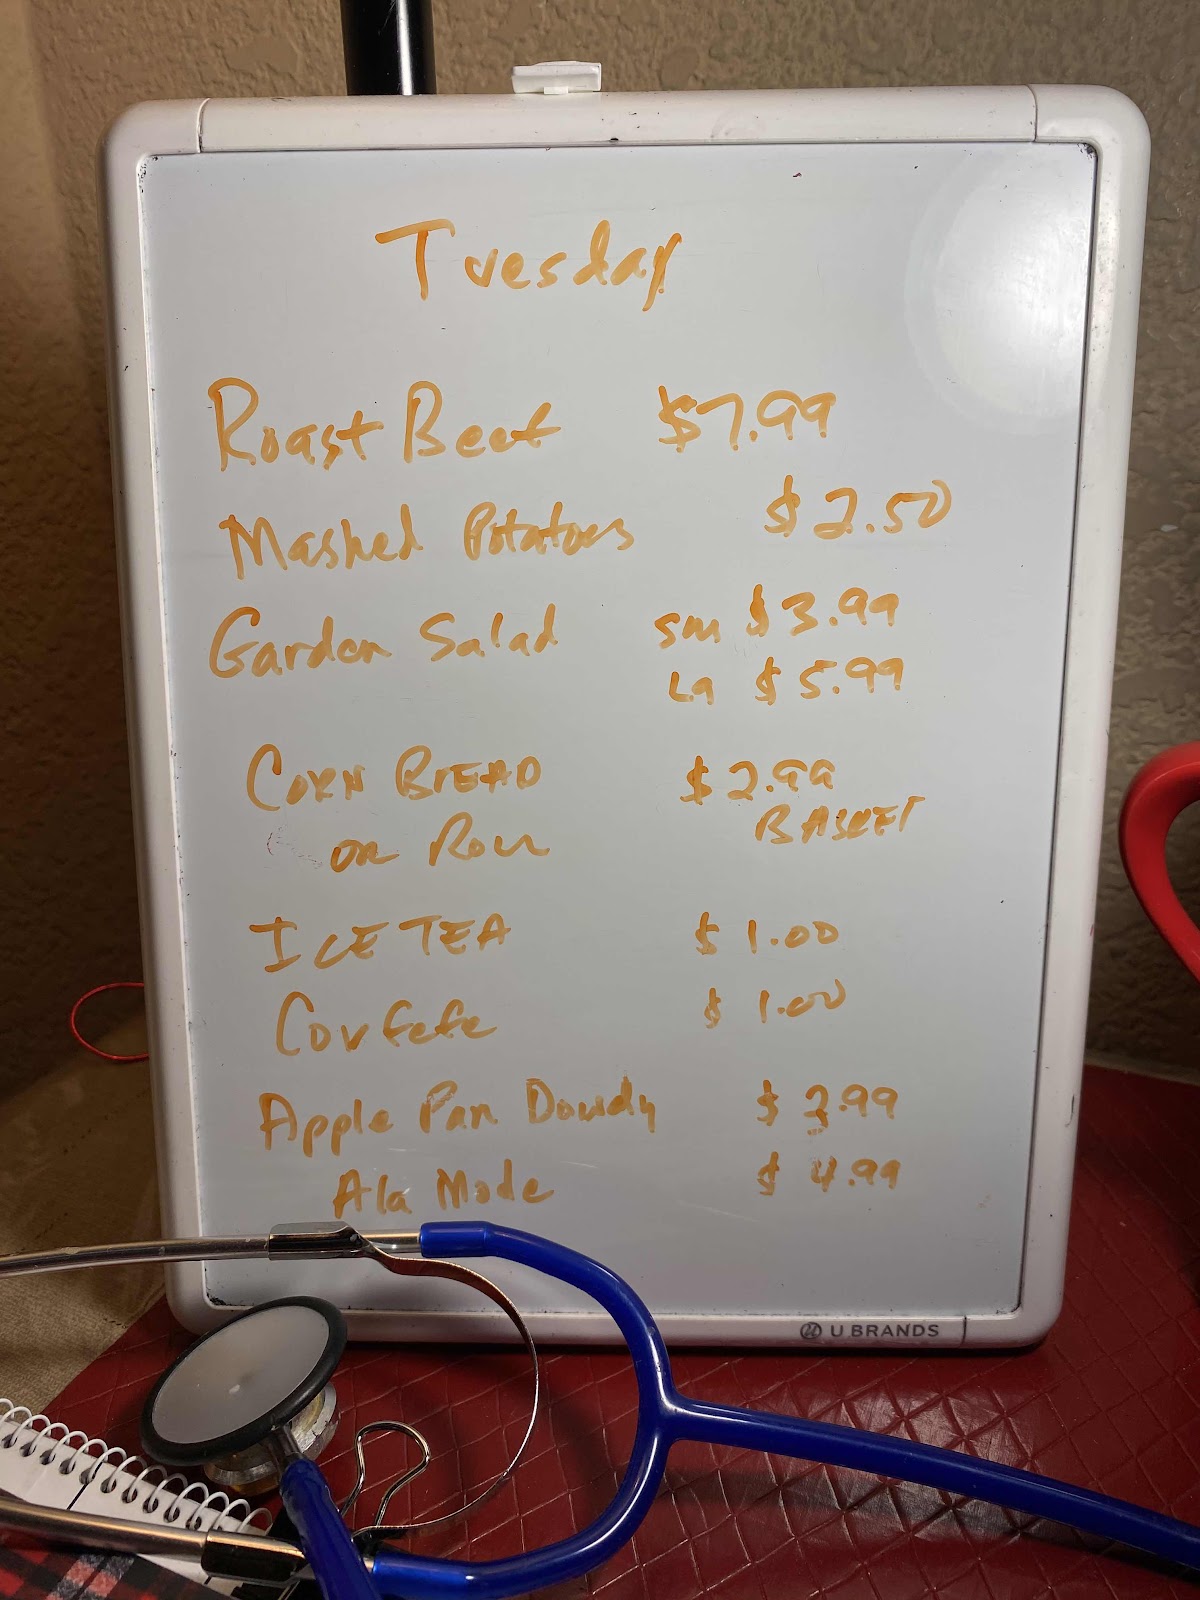 Tuesday
Roast Beef $7.99
Mashed Potatoes $2.50
Garden Salad sm $3.99
La $5.99
CORN BREAD $2.99
OR ROLL BASKET
ICE TEA $1.00
Covfefe $1.00
Apple Pan Dowdy $3.99
Ala Mode $4.99
U BRANDS